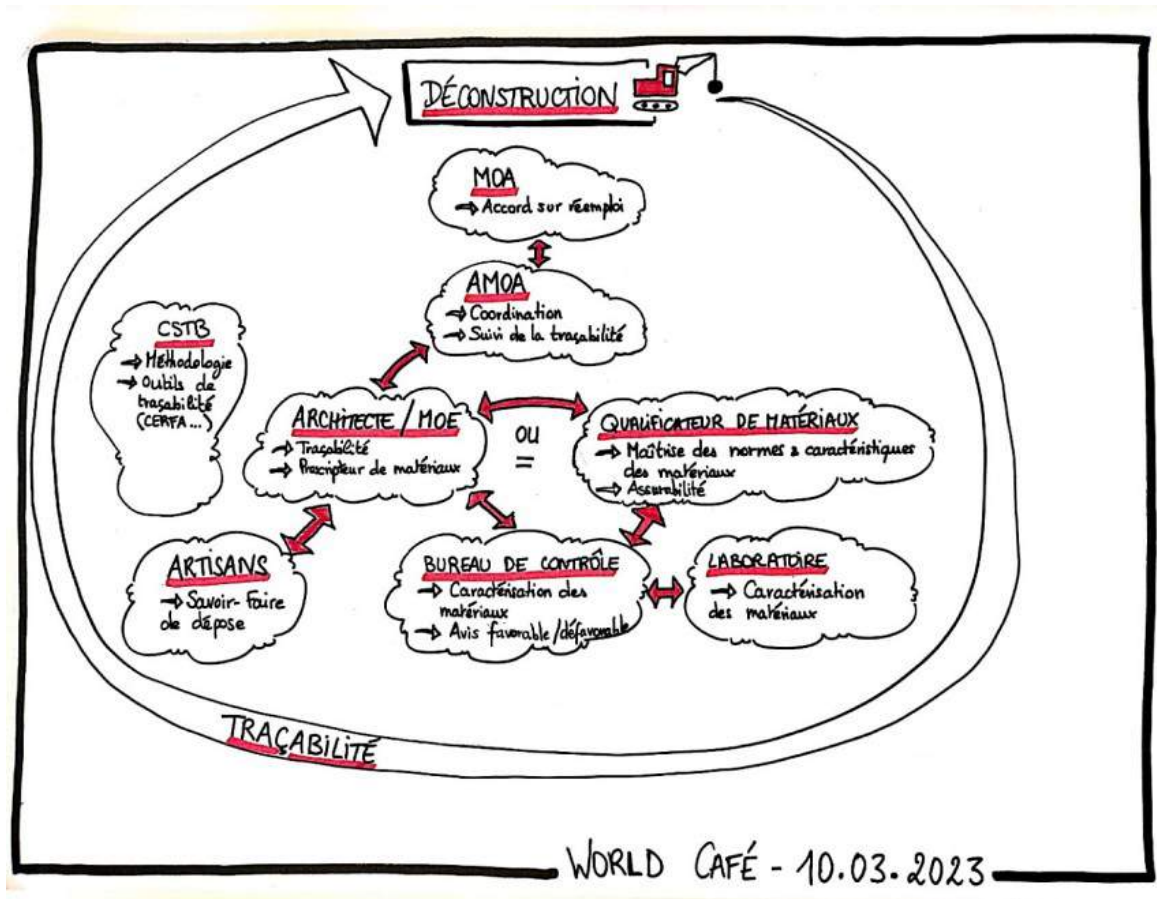 DÉCONSTRUCTION
MOA
→ Accord sur réemploi
AMOA
→ Coordination
→ Suivi de la traçabilité
CSTB
→ Méthodologie
→ Outils de
traçabilité
(CERFA...)
ARCHITECTE / MOE
→ Traçabilité
→ Prescripteur de matériaux
OU
=
QUALIFICATEUR DE MATÉRIAUX
→ Maîtrise des normes & caractéristiques
des matériaux
→ Assurabilité
ARTISANS
→ Savoir-Faire
de dépose
BUREAU DE CONTRÔLE
→ Caractérisation des
matériaux
→ Avis favorable/défavorable
LABORATOIRE
→ Caractérisation
des matériaux
TRAÇABILITÉ
WORLD CAFÉ - 10.03.2023